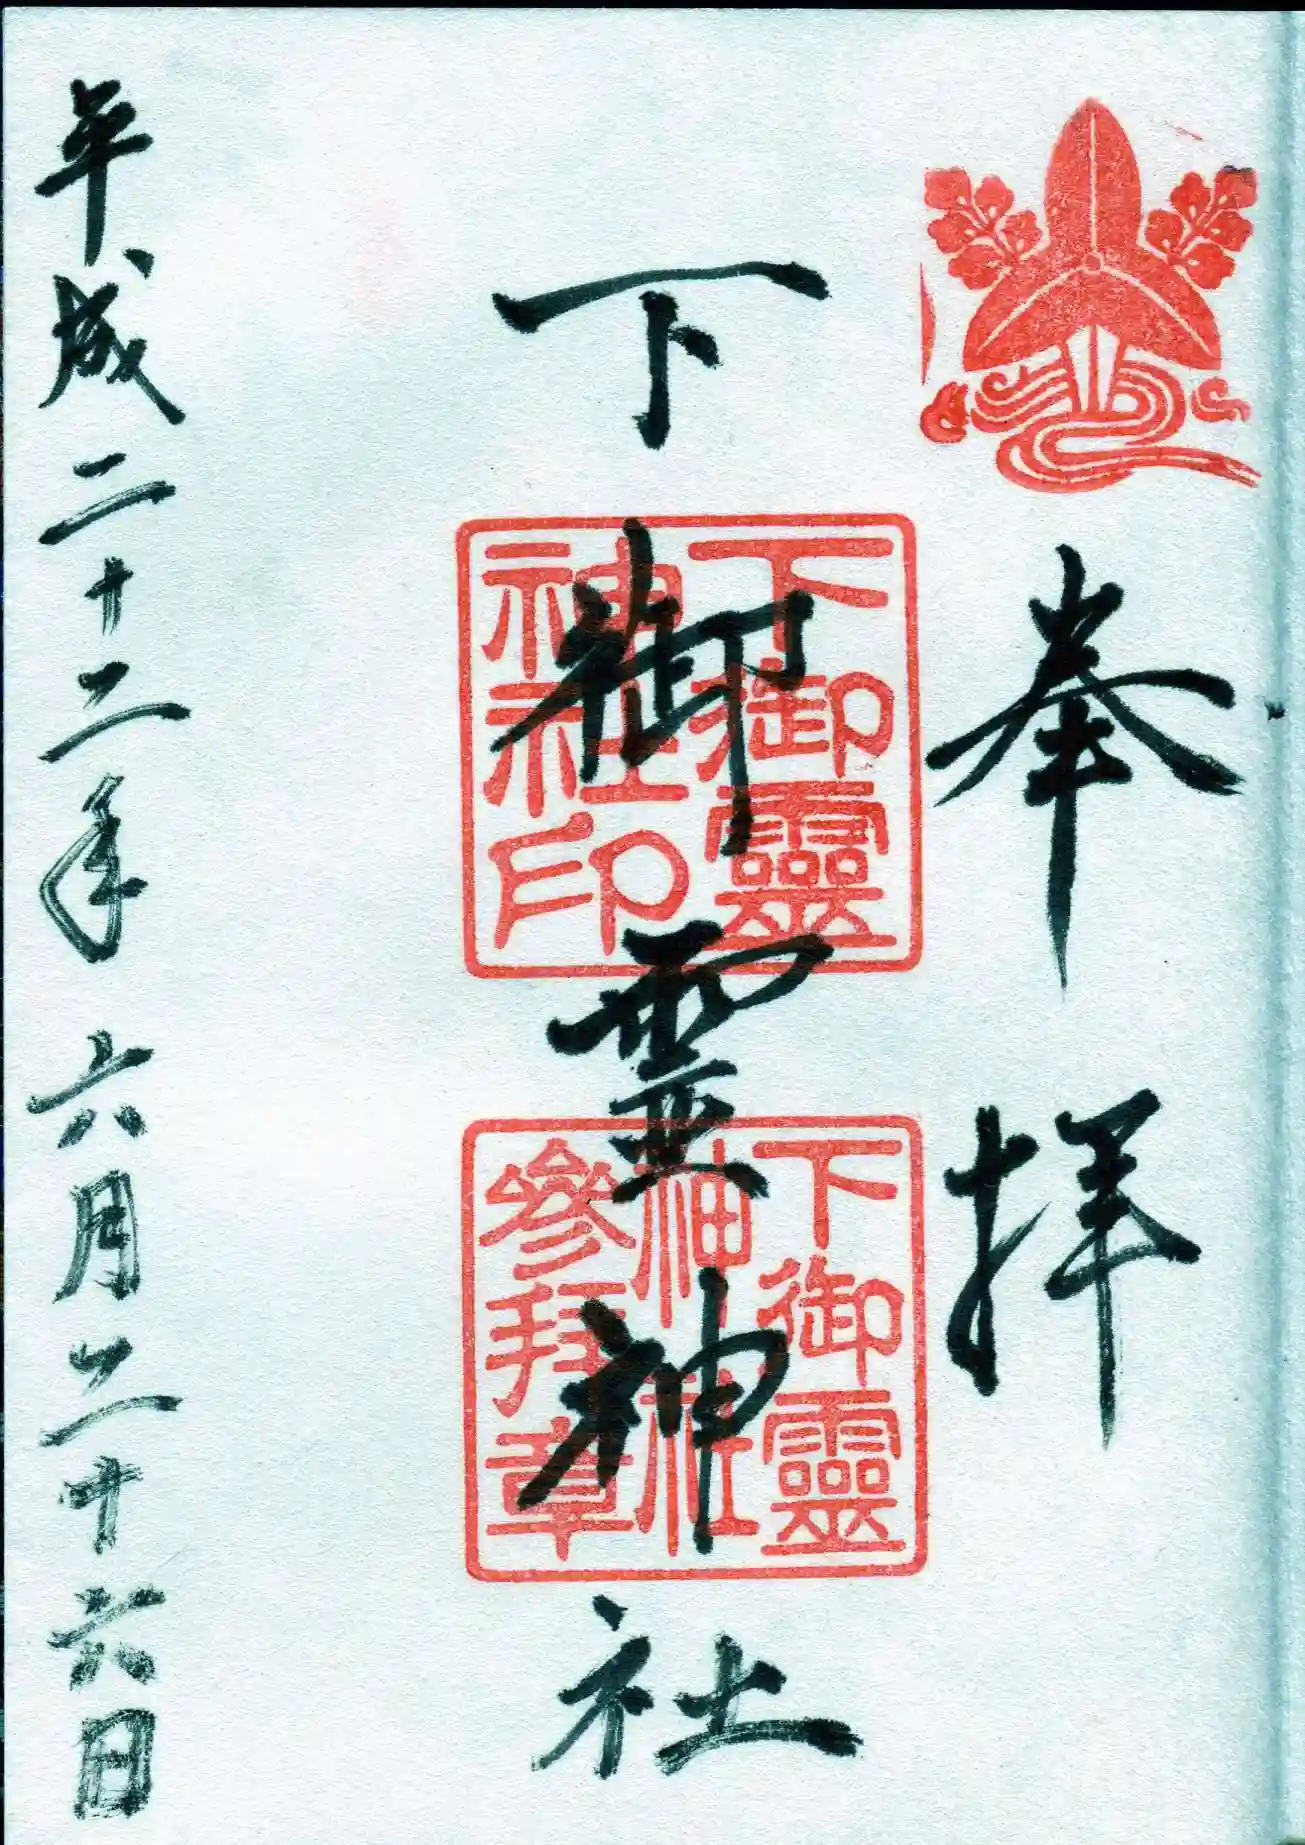 奉拝
下御霊神社
下御靈
神社印
下御靈
神社
參拜章
平成二十二年六月二十六日